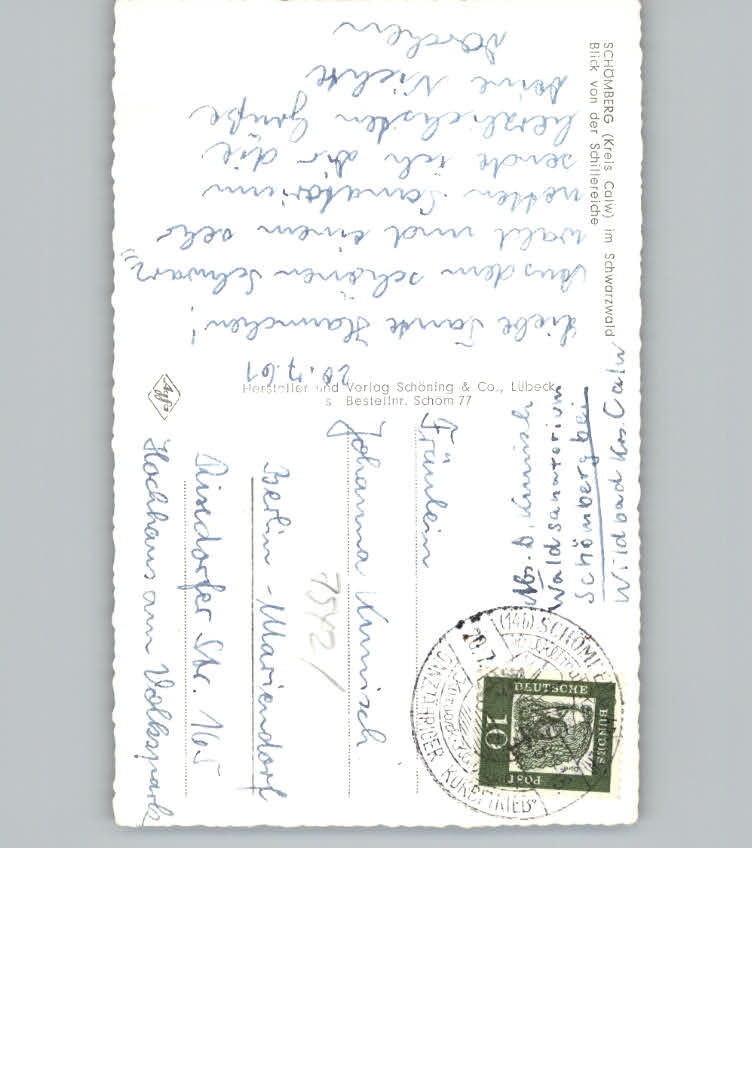 SCHÖMBERG (Kreis Calw) im Schwarzwald
Blick von der Schillereiche
20.7.61
Liebe Tante Hannchen!
Aus dem schönen Schwarz=
wald und einem sehr
netten Sanatorium
sende ich dir die
herzlichsten Grüße
Deine Nichte
Dorchen
Agfa
Hersteller und Verlag Schöning & Co., Lübeck
Bestellnr. Schom 77
Abs. D. Kunisch
Waldsanatorium
Schömberg bei
Wildbad Krs. Calw
DEUTSCHE
BUNDES
POST
10
(14b) SCHÖMBERG
20.7.
KURBETRIEB
Fräulein
Johanna Kunisch
7542/
Berlin-Mariendorf
Rixdorfer Str. 165
Hochhaus am Volkspark